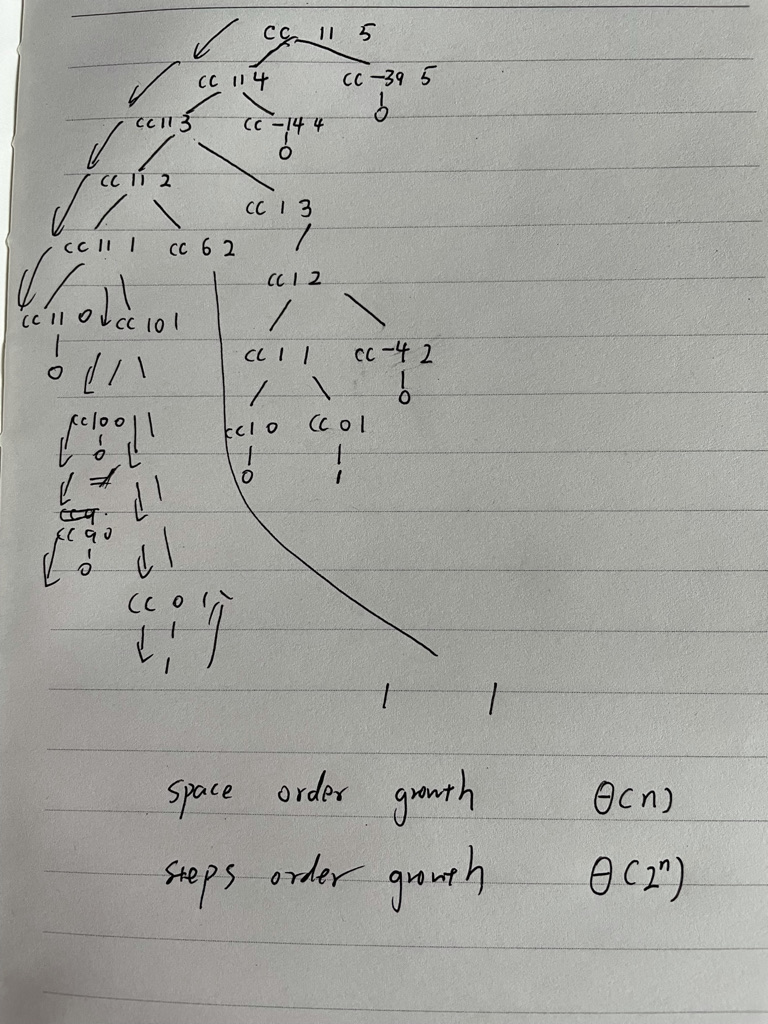 cc 11 5
cc 11 4 cc -39 5
0
cc 11 3 cc -14 4
0
cc 11 2
cc 1 3
cc 11 1 cc 6 2
cc 1 2
cc 11 0 cc 10 1
0
cc 1 1 cc -4 2
0
cc 10 0
0
cc 1 0 cc 0 1
0 1
cc 9
cc 9 0
0
cc 0 1
1
1
space order growth Θ(n)
steps order growth Θ(2ⁿ)